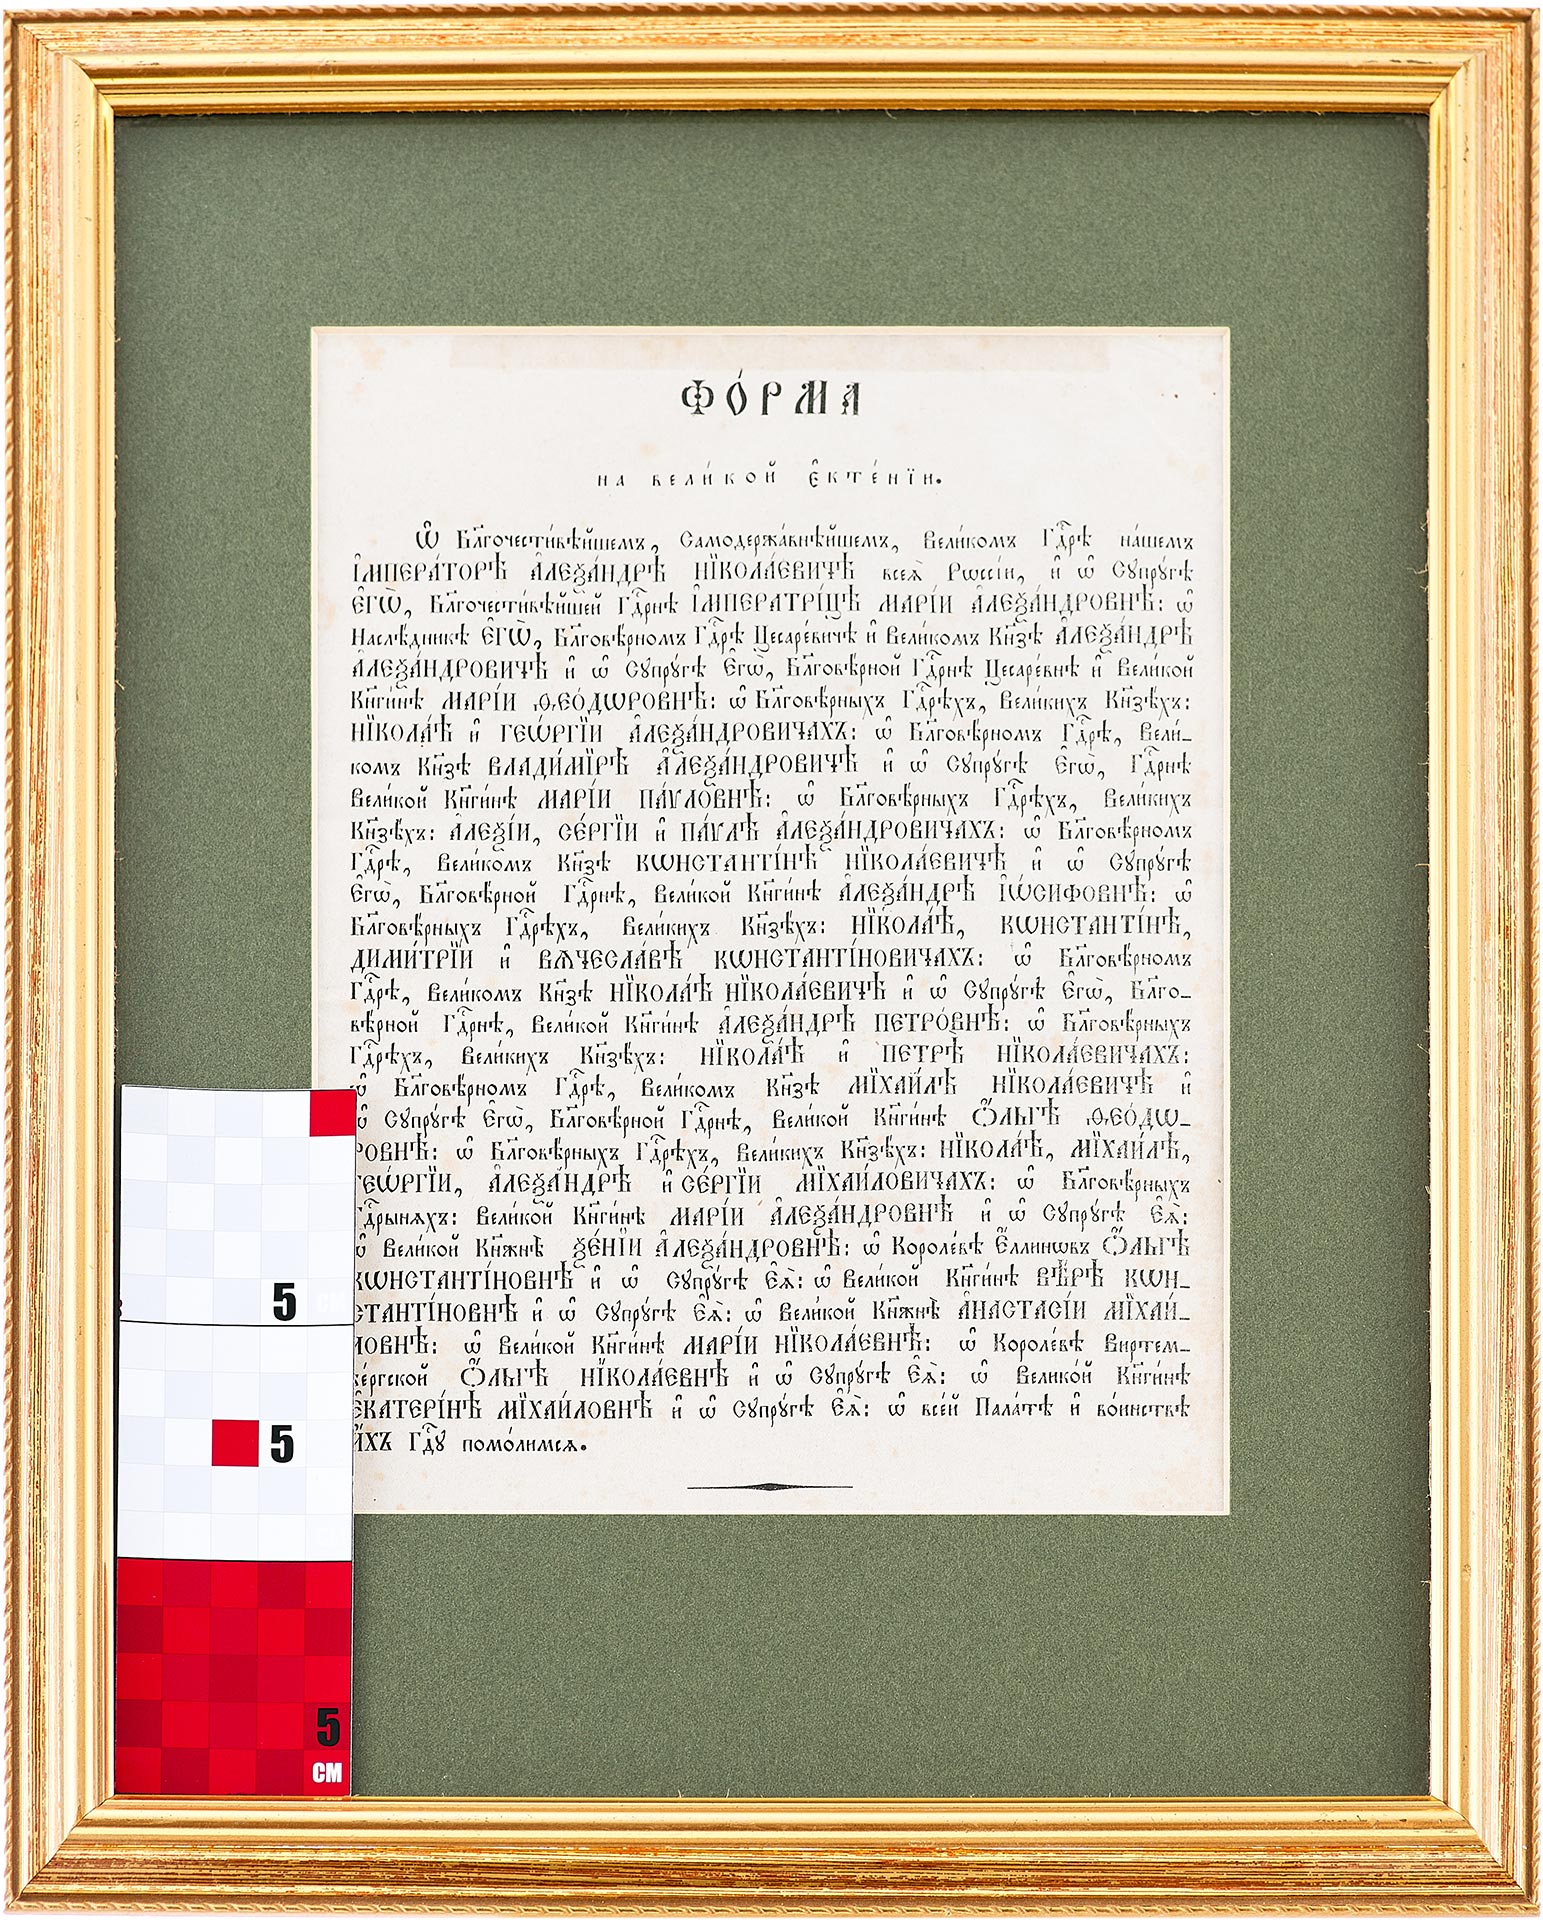 ФО́РМА
на вели́кой є҆ктенїи.
Ѡ҆ Бл҃гочести́вѣйшемъ, Самодержа́внѣйшемъ, Вели́комъ Гдⷭ҇рѣ на́шемъ
І҆МПЕРА́ТОРѢ А҆ЛЕѮА́НДРѢ НЇКОЛА́ЕВИЧѢ всеѧ̀ Рѡссі́и, и҆ ѡ҆ Сꙋпрꙋ́гѣ
Є҆ГѠ̀, Бл҃гочести́вѣйшей Гдⷭ҇рнѣ І҆МПЕРАТРИ́ЦѢ МАРІ́И А҆ЛЕѮА́НДРОВНѢ: ѡ҆
Наслѣ́дникѣ Є҆ГѠ̀, Бл҃говѣ́рномъ Гдⷭ҇рѣ Цесаре́вичѣ и҆ Вели́комъ Кнѧ҃зѣ А҆ЛЕѮА́НДРѢ
А҆ЛЕѮА́НДРОВИЧѢ и҆ ѡ҆ Сꙋпрꙋ́гѣ Є҆гѡ̀, Бл҃говѣ́рной Гдⷭ҇рнѣ Цесаре́внѣ и҆ Вели́кой
Кнѧ҃ги́нѣ МАРІ́И Ѳ҆ЕО́ДѠРОВНѢ: ѡ҆ Бл҃говѣ́рныхъ Гдⷭ҇рѣхъ, Вели́кихъ Кнѧ҃зѣхъ:
НЇКОЛА́Ѣ и҆ ГЕѠ́РГЇИ А҆ЛЕѮА́НДРОВИЧАХЪ: ѡ҆ Бл҃говѣ́рномъ Гдⷭ҇рѣ, Вели́-
комъ Кнѧ҃зѣ ВЛАДИ́МЇРѢ А҆ЛЕѮА́НДРОВИЧѢ и҆ ѡ҆ Сꙋпрꙋ́гѣ Є҆гѡ̀, Гдⷭ҇рнѣ
Вели́кой Кнѧ҃ги́нѣ МАРІ́И ПА́ѴЛОВНѢ: ѡ҆ Бл҃говѣ́рныхъ Гдⷭ҇рѣхъ, Вели́кихъ
Кнѧ҃зѣхъ: А҆ЛЕѮІ́И, СЕ́РГЇИ и҆ ПА́ѴЛѢ А҆ЛЕѮА́НДРОВИЧАХЪ: ѡ҆ Бл҃говѣ́рномъ
Гдⷭ҇рѣ, Вели́комъ Кнѧ҃зѣ КѠНСТАНТІ́НѢ НЇКОЛА́ЕВИЧѢ и҆ ѡ҆ Сꙋпрꙋ́гѣ
Є҆гѡ̀, Бл҃говѣ́рной Гдⷭ҇рнѣ, Вели́кой Кнѧ҃ги́нѣ А҆ЛЕѮА́НДРѢ І҆Ѡ́СИФОВНѢ: ѡ҆
Бл҃говѣ́рныхъ Гдⷭ҇рѣхъ, Вели́кихъ Кнѧ҃зѣхъ: НЇКОЛА́Ѣ, КѠНСТАНТІ́НѢ,
ДИМИ́ТРЇИ и҆ ВѦЧЕСЛА́ВѢ КѠНСТАНТІ́НОВИЧАХЪ: ѡ҆ Бл҃говѣ́рномъ
Гдⷭ҇рѣ, Вели́комъ Кнѧ҃зѣ НЇКОЛА́Ѣ НЇКОЛА́ЕВИЧѢ и҆ ѡ҆ Сꙋпрꙋ́гѣ Є҆гѡ̀, Бл҃го-
вѣ́рной Гдⷭ҇рнѣ, Вели́кой Кнѧ҃ги́нѣ А҆ЛЕѮА́НДРѢ ПЕТРО́ВНѢ: ѡ҆ Бл҃говѣ́рныхъ
Гдⷭ҇рѣхъ, Вели́кихъ Кнѧ҃зѣхъ: НЇКОЛА́Ѣ и҆ ПЕТРѢ̀ НЇКОЛА́ЕВИЧАХЪ:
ѡ҆ Бл҃говѣ́рномъ Гдⷭ҇рѣ, Вели́комъ Кнѧ҃зѣ МЇХАИ́ЛѢ НЇКОЛА́ЕВИЧѢ и҆
ѡ҆ Сꙋпрꙋ́гѣ Є҆гѡ̀, Бл҃говѣ́рной Гдⷭ҇рнѣ, Вели́кой Кнѧ҃ги́нѣ Ѻ҆́ЛЬГѢ Ѳ҆ЕО́ДѠ-
РОВНѢ: ѡ҆ Бл҃говѣ́рныхъ Гдⷭ҇рѣхъ, Вели́кихъ Кнѧ҃зѣхъ: НЇКОЛА́Ѣ, МЇХАИ́ЛѢ,
ГЕѠ́РГЇИ, А҆ЛЕѮА́НДРѢ и҆ СЕ́РГЇИ МЇХАИ́ЛОВИЧАХЪ: ѡ҆ Бл҃говѣ́рныхъ
Гдⷭ҇рыняхъ: Вели́кой Кнѧ҃ги́нѣ МАРІ́И А҆ЛЕѮА́НДРОВНѢ и҆ ѡ҆ Сꙋпрꙋ́гѣ Є҆Ѧ̀:
ѡ҆ Вели́кой Кнѧ҃жнѣ̀ ѮЕ́НЇИ А҆ЛЕѮА́НДРОВНѢ: ѡ҆ Короле́вѣ Е҆́ллинѡвъ Ѻ҆́ЛЬГѢ
КѠНСТАНТІ́НОВНѢ и҆ ѡ҆ Сꙋпрꙋ́гѣ Є҆Ѧ̀: ѡ҆ Вели́кой Кнѧ҃ги́нѣ ВѢ́РѢ КѠН-
СТАНТІ́НОВНѢ и҆ ѡ҆ Сꙋпрꙋ́гѣ Є҆Ѧ̀: ѡ҆ Вели́кой Кнѧ҃жнѣ̀ А҆НАСТАСІ́И МЇХАИ́-
ЛОВНѢ: ѡ҆ Вели́кой Кнѧ҃ги́нѣ МАРІ́И НЇКОЛА́ЕВНѢ: ѡ҆ Короле́вѣ Виртем-
бе́ргской Ѻ҆́ЛЬГѢ НЇКОЛА́ЕВНѢ и҆ ѡ҆ Сꙋпрꙋ́гѣ Є҆Ѧ̀: ѡ҆ Вели́кой Кнѧ҃ги́нѣ
Є҆КАТЕРІ́НѢ МЇХАИ́ЛОВНѢ и҆ ѡ҆ Сꙋпрꙋ́гѣ Є҆Ѧ̀: ѡ҆ все́й Пала́тѣ и҆ во́инствѣ
И҆́ХЪ Гдⷭ҇ꙋ помо́лимсѧ.
5
5
5
CM